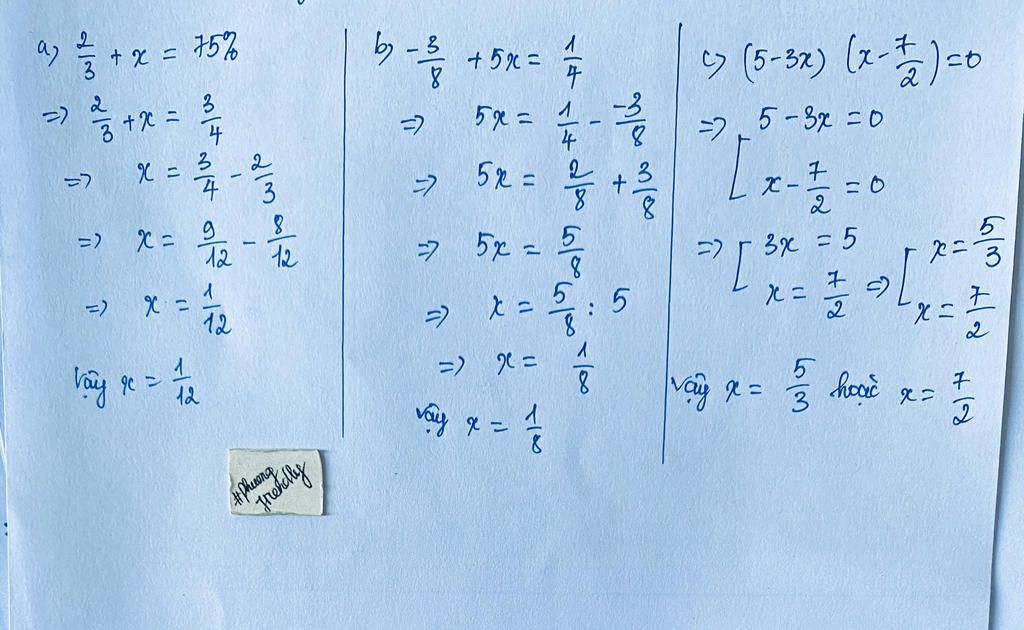 a) 2/3 + x = 75%
=> 2/3 + x = 3/4
=> x = 3/4 - 2/3
=> x = 9/12 - 8/12
=> x = 1/12
Vậy x = 1/12
b) -3/8 + 5x = 1/4
=> 5x = 1/4 - -3/8
=> 5x = 2/8 + 3/8
=> 5x = 5/8
=> x = 5/8 : 5
=> x = 1/8
Vậy x = 1/8
c) (5-3x) (x - 7/2) = 0
=> [ 5 - 3x = 0
x - 7/2 = 0
=> [ 3x = 5 => [ x = 5/3
x = 7/2 x = 7/2
Vậy x = 5/3 hoặc x = 7/2
#phuong